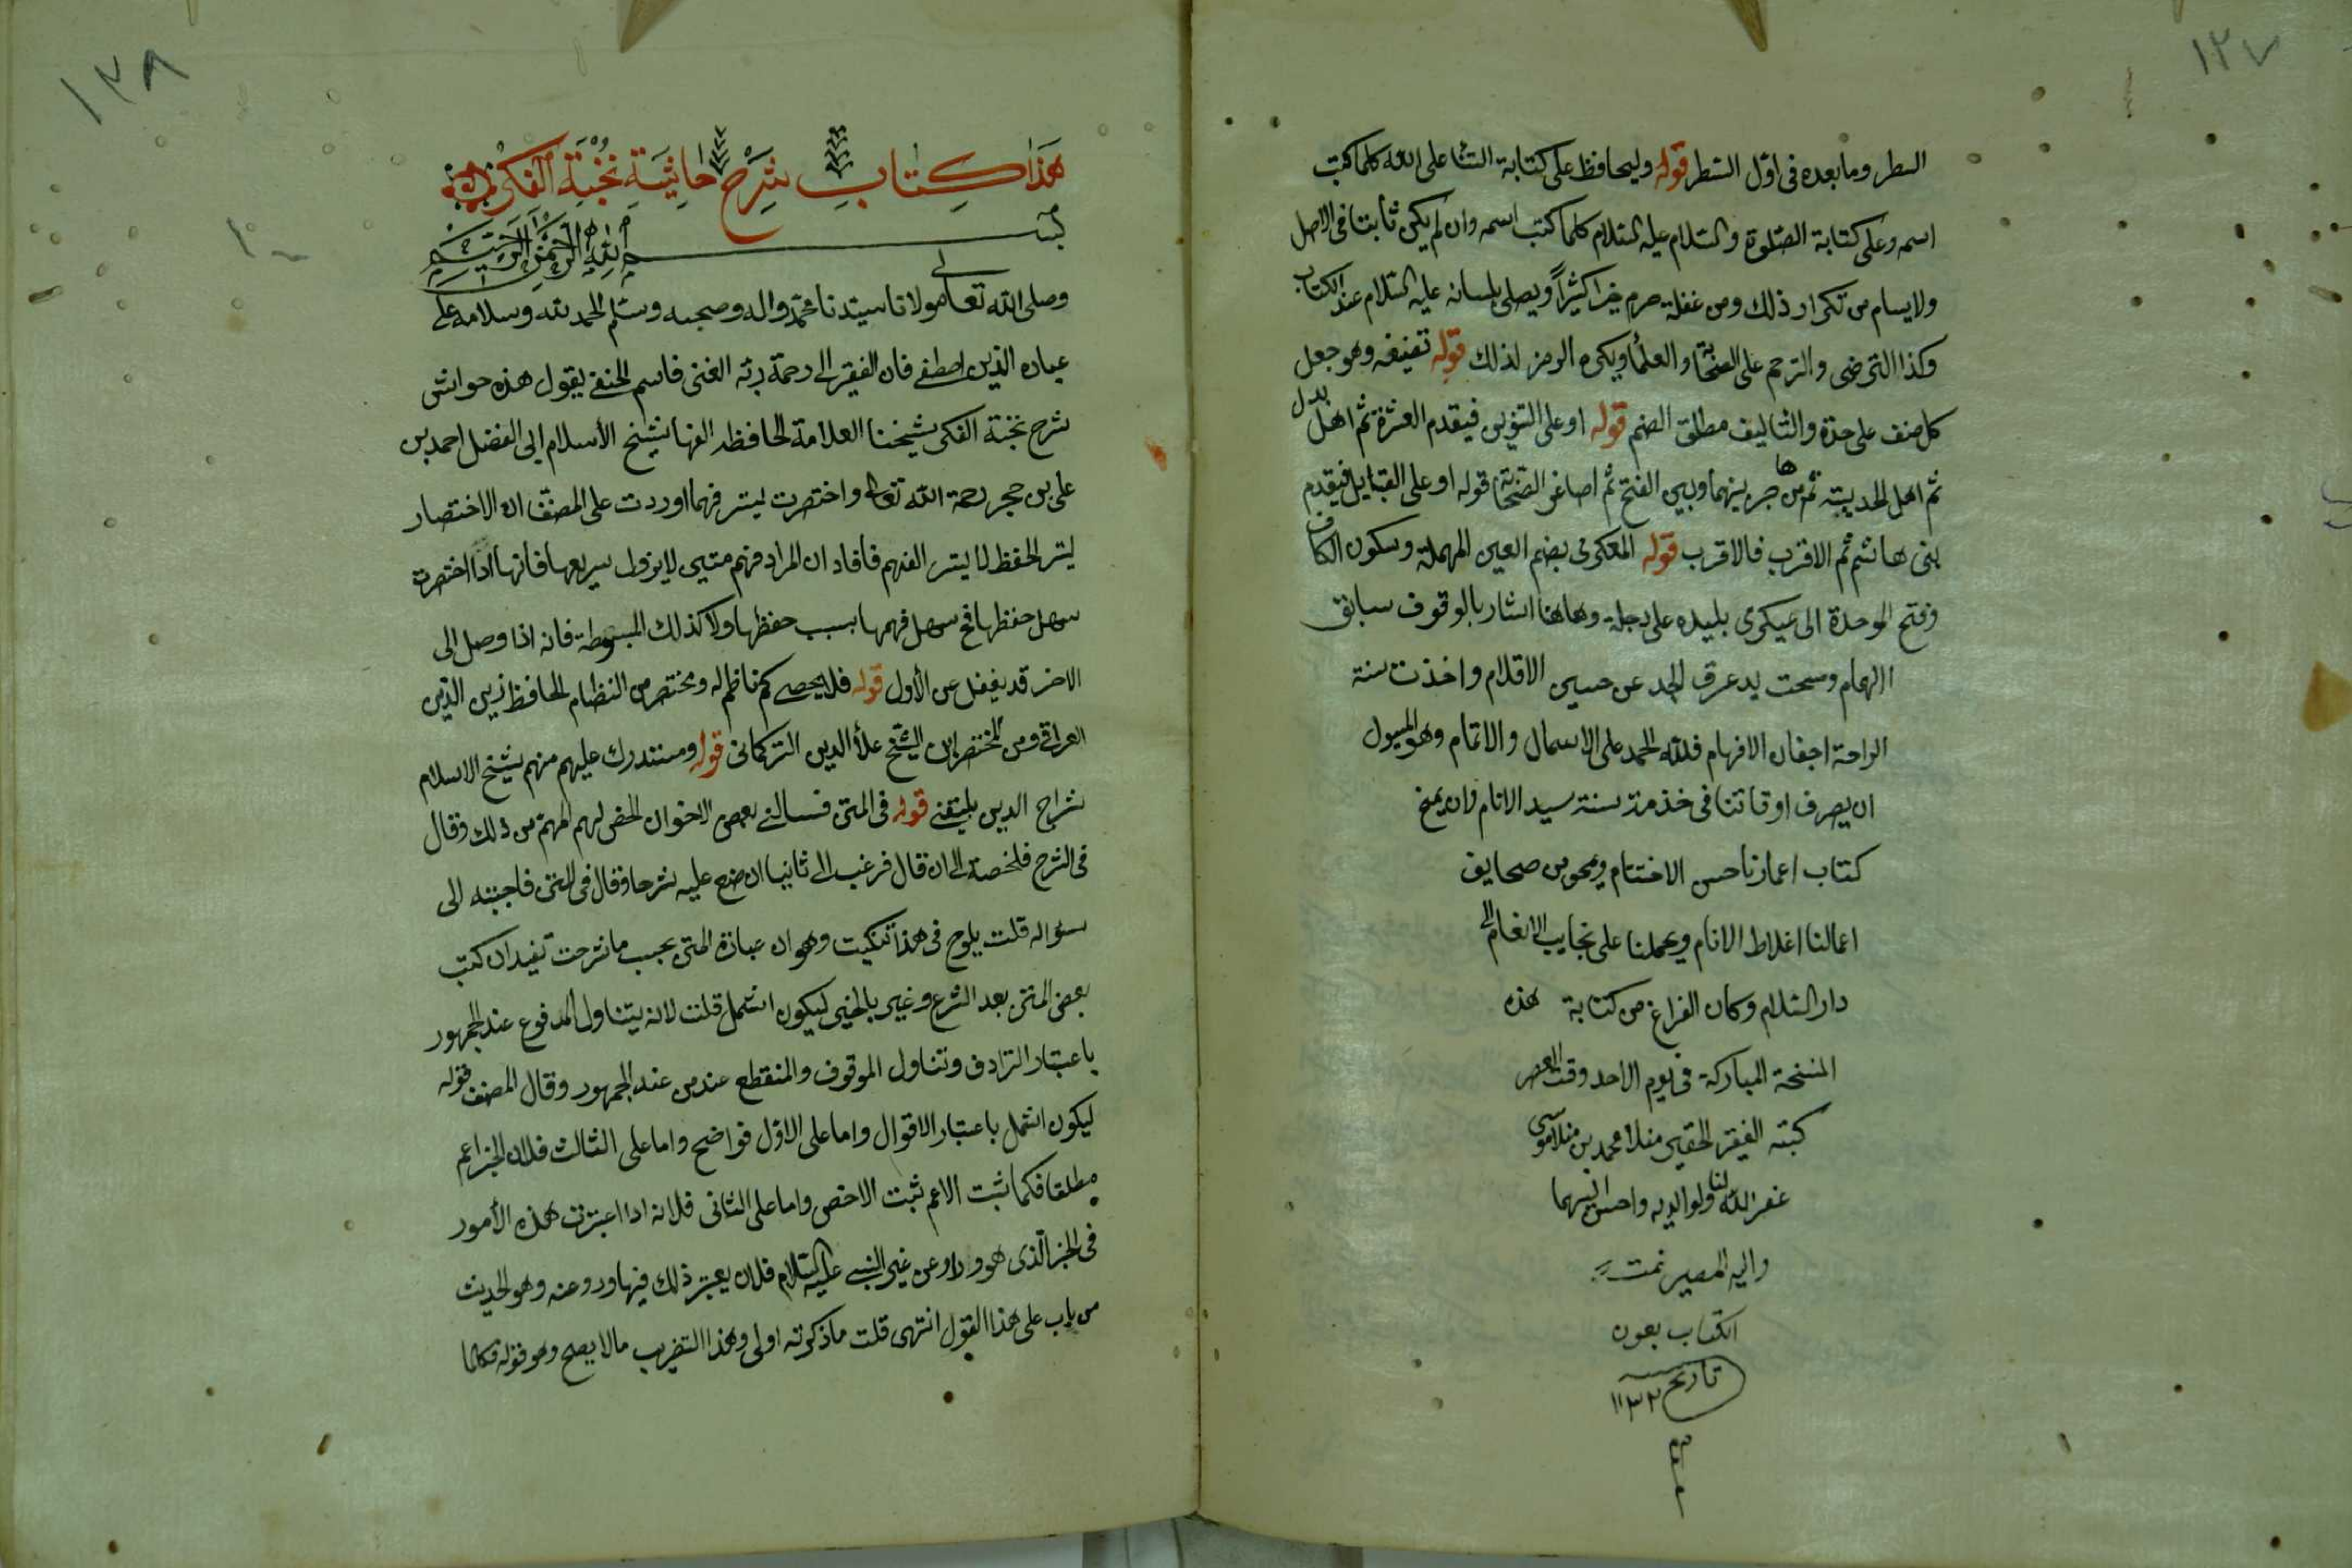 ١٢٧
السطر وما بعده فى اول السطر قوله وليحافظ على كتابة الثنا على الله كلما كتب
اسمه وعلى كتابة الصلوة والسلام عليه السلام كلما كتب اسمه وان لم يكن ثابتا فى الاصل
ولا يسام من تكرار ذلك ومن غفلة حرم خيرا كثيراً ويصلى بلسانه عليه السلام عند الكتاب
وكذا الترضى والترحم على الصحابة والعلماء ويكره الرمز لذلك قوله تصنيفه وهو جعل
كل صنف على حدة والتاليف مطلق الضم قوله او على فيقدم العشرة ثم اهل بدل
ثم اهل الحديبية ثم من هاجر بينهما وبين الفتح ثم اصاغر الصحابة قوله او على القبايل فيقدم
بنى هاشم ثم الاقرب فالاقرب قوله العكبرى بضم العين المهملة وسكون الكاف
وفتح الموحدة الى عيكبرى بليده على دجلة وهاهنا اشار بالوقوف سابق
الالهام وسحت يد عرق الجد عن جبين الاقلام واخذت سنة
الراحة اجفان الافهام فلله الحمد على الاسمال والاتمام وهو المسول
ان يصرف اوقاتنا فى خدمة سنة سيد الانام وان يمخ
كتاب اعمارنا حسن الاختتام ويمحو من صحايف
اعمالنا اغلاط الانام ويحملنا على نجايب الانعام الى
دار السلام وكان الفراغ من كتابة هذه
النسخة المباركة فى يوم الاحد وقت العصر
كتبه الفقير الحقير منلا محمد بن منلا موسى
غفر الله لنا ولوالديه واحسن اليهما
واليه المصير تمت
الكتاب بعون
تاريخ ١١٣٢
١٢٨
هَذَا كِتَابِ شَرْح حَاشِيَةِ نُخْبَةِ الفكر
بسم الله الرحمن الرحيم
وصلى الله تعالى مولانا سيدنا محمد واله وصحبه وسلم الحمد لله وسلامه على
عباده الذين اصطفى فان الفقير الى رحمة ربه الغنى قاسم الحنفى يقول هذه حواش
شرح نخبة الفكر شيخنا العلامة الحافظ شيخ الأسلام ابى الفضل احمد بن
على بن حجر رحمة الله تعالى واختصرت ليتسر فهما اوردت على المصنف ان الاختصار
ليتسر الحفظ لا ليتسر الفهم فافاد ان المراد فهم متين لا يزول سريعها فانها اذا اختصرت
سهل حفظها فح سهل فهمها بسبب حفظها ولا كذلك المبسوطة فانه اذا وصل الى
الاخر قد يغفل عن الأول قوله فلا يحصى كم ناظم له ومختصر من النظام الحافظ زين الدين
العراقى ومن المختصرين الشيخ علاء الدين التركمانى قوله ومستدرك عليهم منهم شيخ الاسلام
شراج الدين بلقينى قوله فى المتن فسالنى بعض الاخوان الخص لهم المهم من ذلك وقال
فى الشرح فلخصته الى ان قال فرغب الى ثانيا ان ضع عليه شرحا وقال فى المتن فاجبته الى
سؤاله قلت يلوح فى هذا تنكيت وهو ان عبارة المتن بحسب ما شرحت تفيد ان كتب
بعض المتن بعد الشرع وغير بالخبر ليكون اشمل قلت لانه يتناول المدفوع عند الجمهور
باعتبار الترادف وتناول الموقوف والمنقطع عند من عند الجمهور وقال المصنف قوله
ليكون اشمل باعتبار الاقوال واما على الاول فواضح واما على الثالث فلان الخبر اعم
مطلقا فكما ثبت الاعم ثبت الاخص واما على الثانى فلانه اذا اعتبرت هذه الأمور
فى الخبر الذى هو وراو عن غير النبى عليه السلام فلان يعتبر ذلك فيها ورد عنه وهو الحديث
من باب على هذا القول انتهى قلت ما ذكرته اولى وهذا التضريب مالا يصلح وهو قوله فكلما